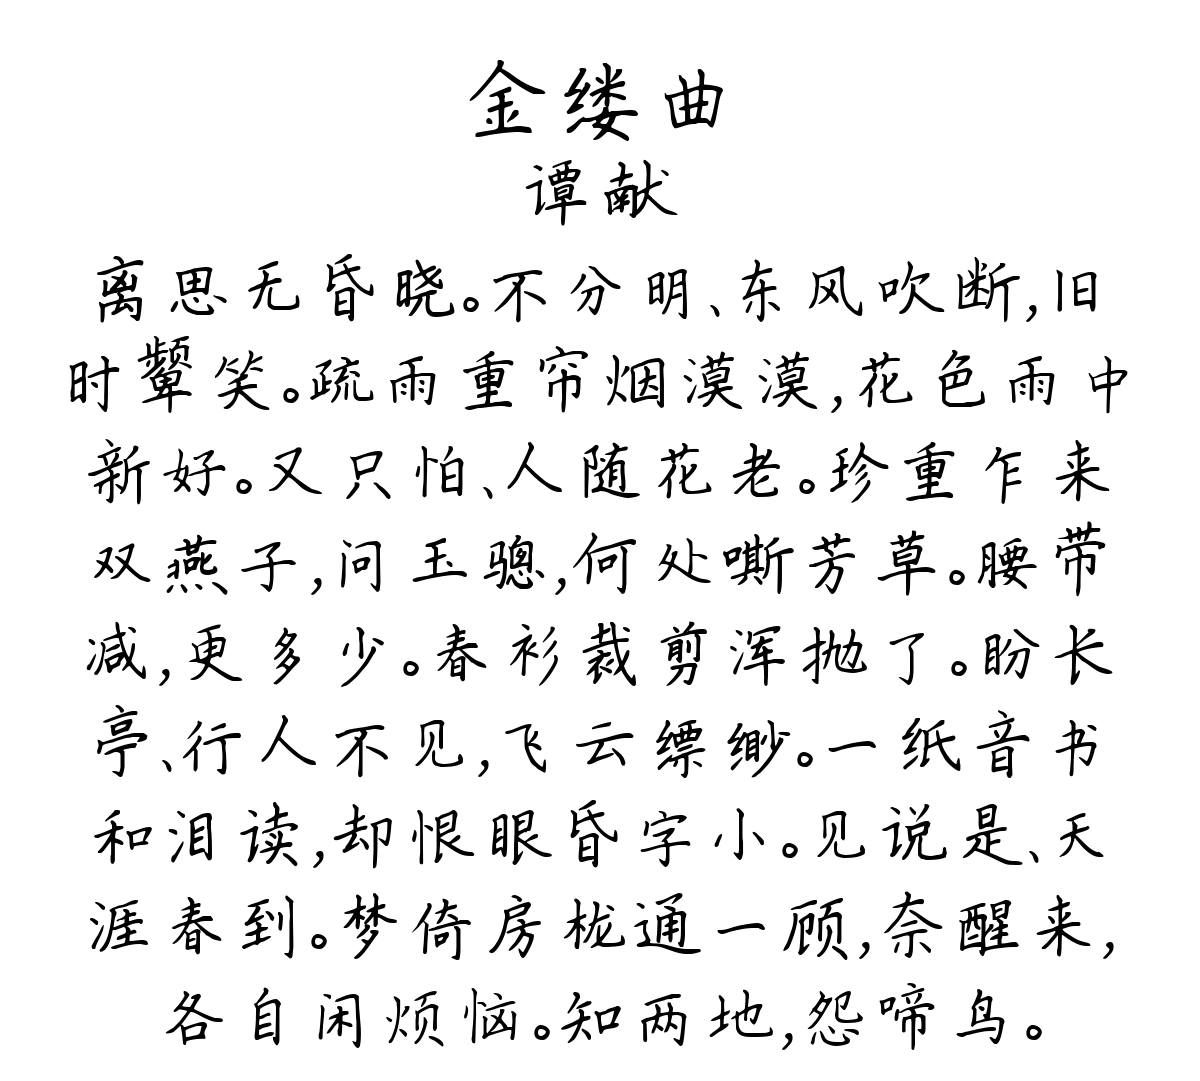 金缕曲
谭献
离思无昏晓。不分明、东风吹断,旧
时颦笑。疏雨重帘烟漠漠,花色雨中
新好。又只怕、人随花老。珍重乍来
双燕子,问玉骢,何处嘶芳草。腰带
减,更多少。春衫裁剪浑抛了。盼长
亭、行人不见,飞云缥缈。一纸音书
和泪读,却恨眼昏字小。见说是、天
涯春到。梦倚房栊通一顾,奈醒来,
各自闲烦恼。知两地,怨啼鸟。